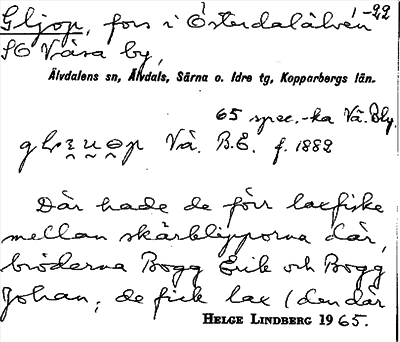 Gljop, fors i Österdalälven 1-22
SO Våsa by,
Älvdalens sn, Älvdals, Särna o. Idre tg, Kopparbergs län.
65 spec.-ka Vå. Bly.
Vå. B.E. f. 1882
Där hade de förr laxfiske
mellan skärklipporna där,
bröderna Bogg Erik och Bogg
Johan; de fick lax (den där
HELGE LINDBERG 1965.